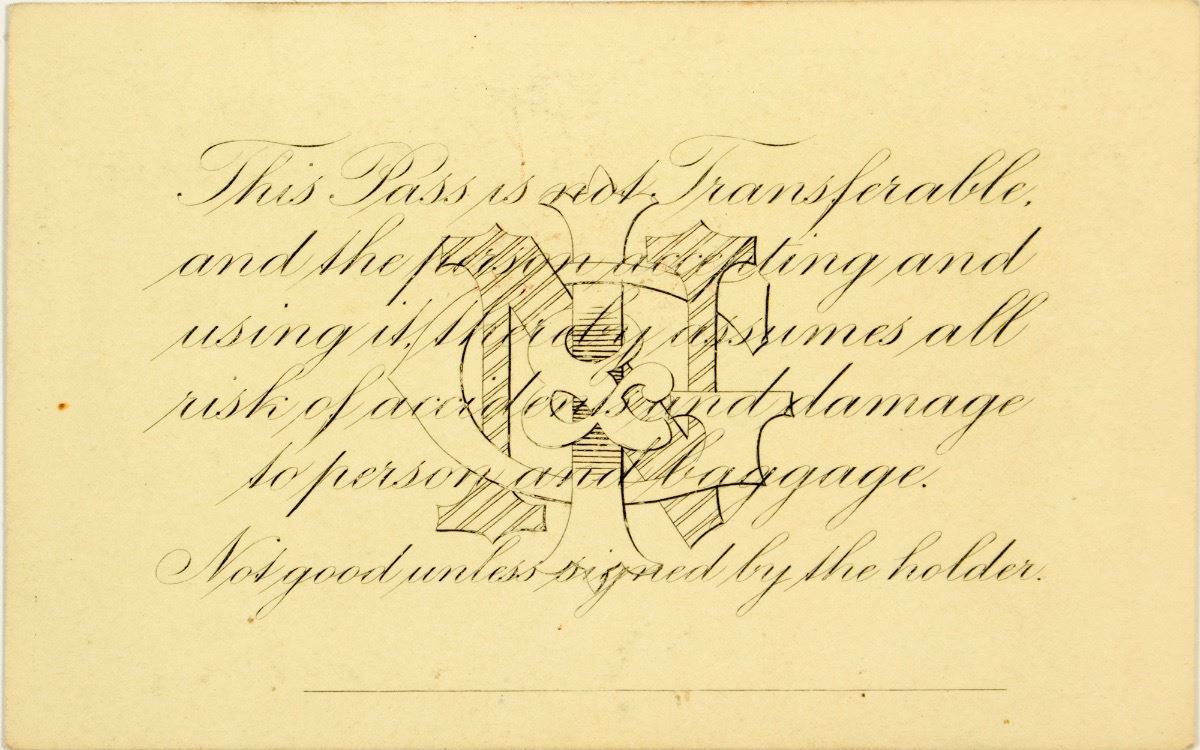 This Pass is not Transferable,
and the person accepting and
using it, thereby assumes all
risk of accidents and damage
to person and baggage.
Not good unless signed by the holder.